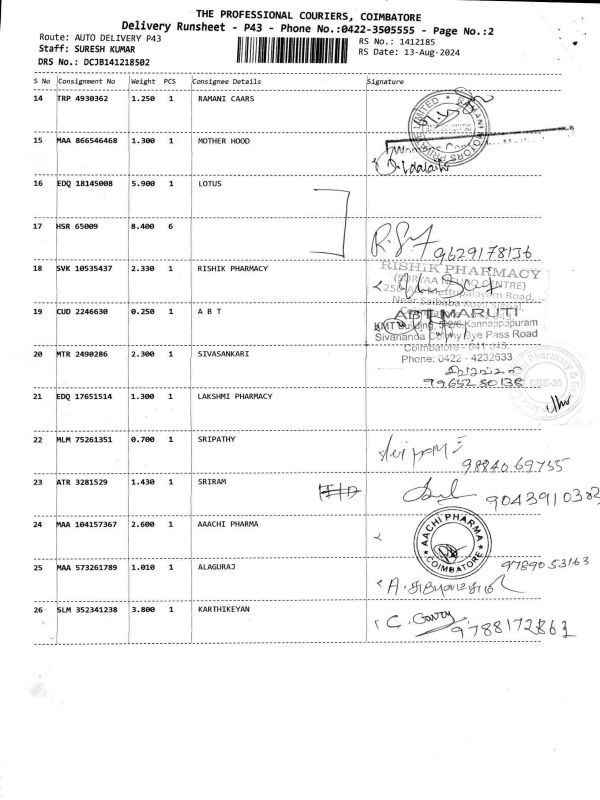 THE PROFESSIONAL COURIERS, COIMBATORE
Delivery Runsheet - P43 - Phone No.:0422-3505555 - Page No.:2
Route: AUTO DELIVERY P43
RS No.: 1412185
Staff: SURESH KUMAR
RS Date: 13-Aug-2024
DRS No.: DCJB141218502
S No Consignment No Weight PCS Consignee Details Signature
14 TRP 4930362 1.250 1 RAMANI CAARS
RAMANI MOTORS PRIVATE LIMITED
15 MAA 866546468 1.300 1 MOTHER HOOD
16 EDQ 18145008 5.900 1 LOTUS
17 HSR 65009 8.400 6
9629178136
18 SVK 10535437 2.330 1 RISHIK PHARMACY
RISHIK PHARMACY
Mettupalayam Road,
Near Saibaba
19 CUD 2246630 0.250 1 A B T
ABT MARUTI
KMT Building, Kannappapuram
Sivananda Colony Bye Pass Road
Coimbatore - 641
Phone: 0422 - 4232633
20 MTR 2490286 2.300 1 SIVASANKARI
9965280138
21 EDQ 17651514 1.300 1 LAKSHMI PHARMACY
22 MLM 75261351 0.700 1 SRIPATHY
9884069755
23 ATR 3281529 1.430 1 SRIRAM
24 MAA 104157367 2.600 1 AAACHI PHARMA
AACHI PHARMA
COIMBATORE
25 MAA 573261789 1.010 1 ALAGURAJ
9789053163
26 SLM 352341238 3.800 1 KARTHIKEYAN
9788172861